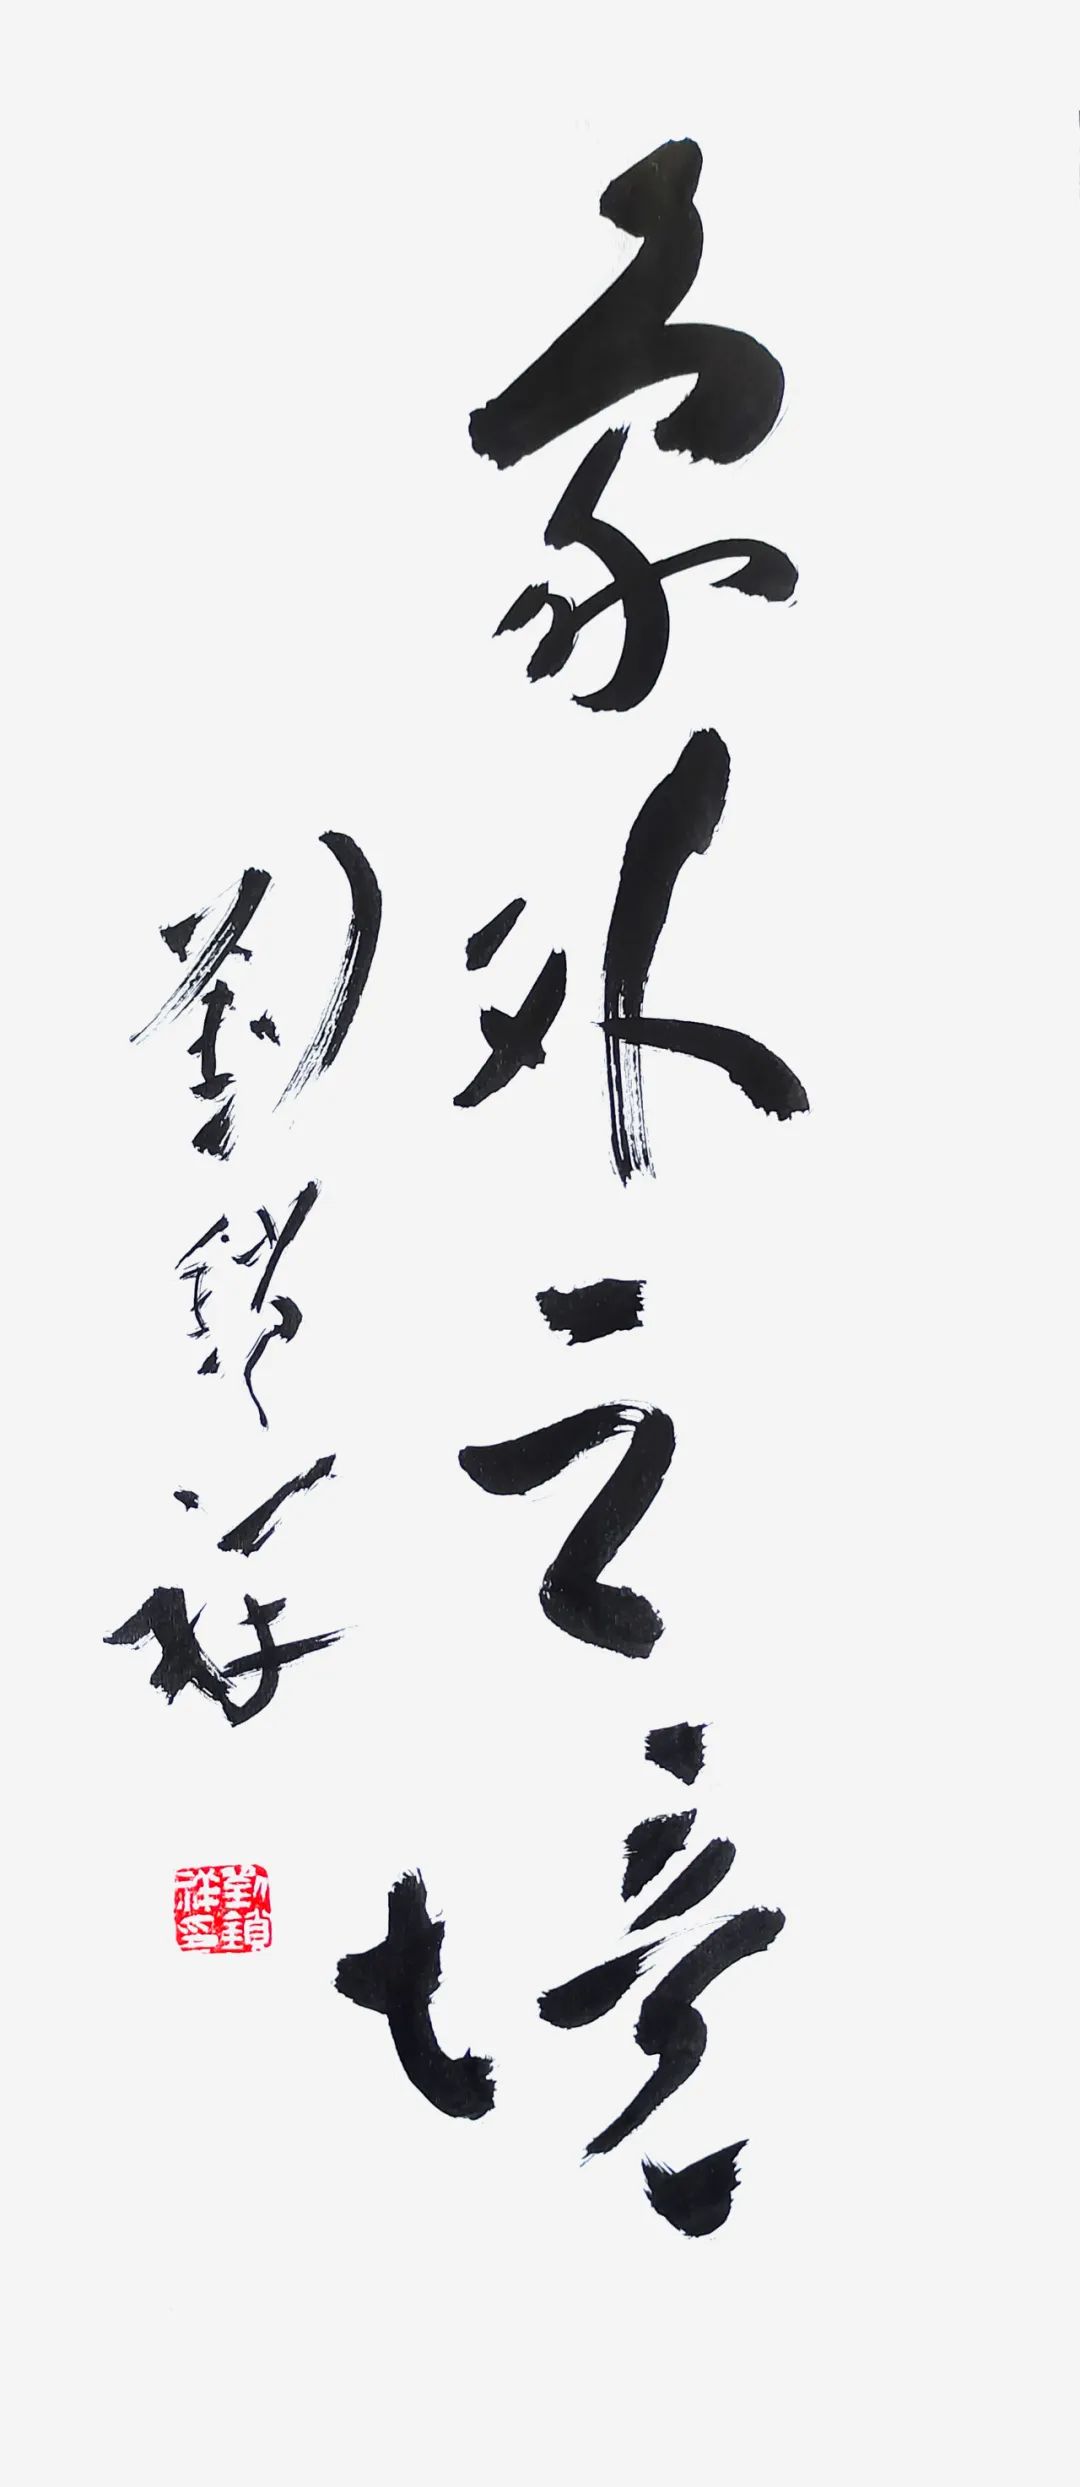 象外之境
劉鎖祥
劉鎖祥印